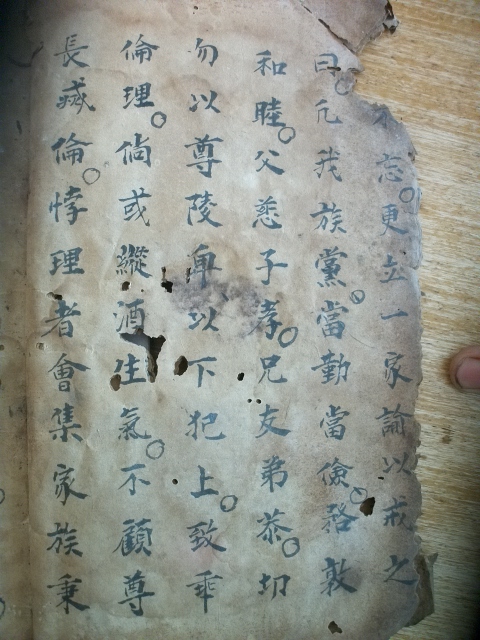 不忘。更立一家諭以戒之
曰。凡我族黨。當勤當儉。務敦
和睦。父慈子孝。兄友弟恭。切
勿以尊陵卑以下犯上。致乖
倫理。倘或縱酒生氣。不顧尊
長蔑倫。悖理者會集家族秉